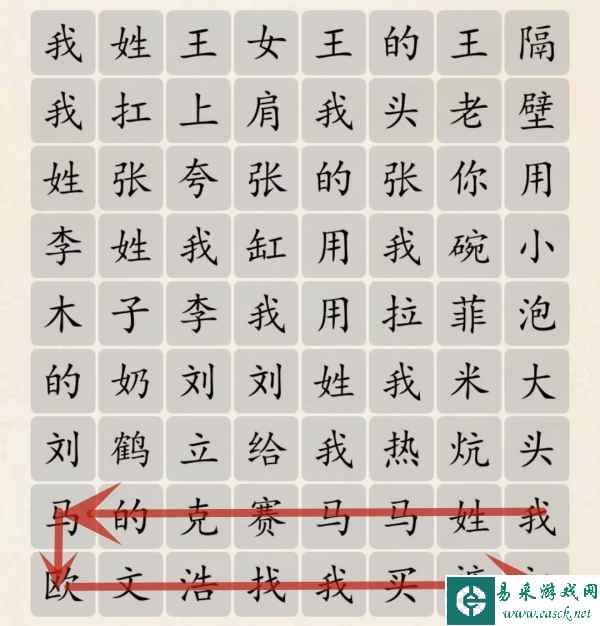 我姓王女王的王隔
我扛上肩我头老壁
姓张夸张的张你用
李姓我缸用我碗小
木子李我用拉菲泡
的奶刘刘姓我米大
刘鹤立给我热炕头
马的克赛马马姓我
欧文浩找我买
易采游戏网
www.easck.net